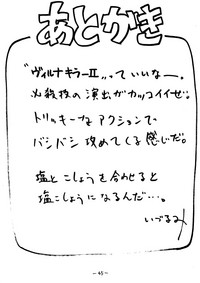 あとがき
"ヴィルナキラーⅡ"…っていいなー。
必殺技の演出がカッコイイぜ。
トリッキーなアクションで
バシバシ攻めてくる感じだ。
塩とこしょうを合わせると
塩こしょうになるんだ…。
いづるみ
-45-